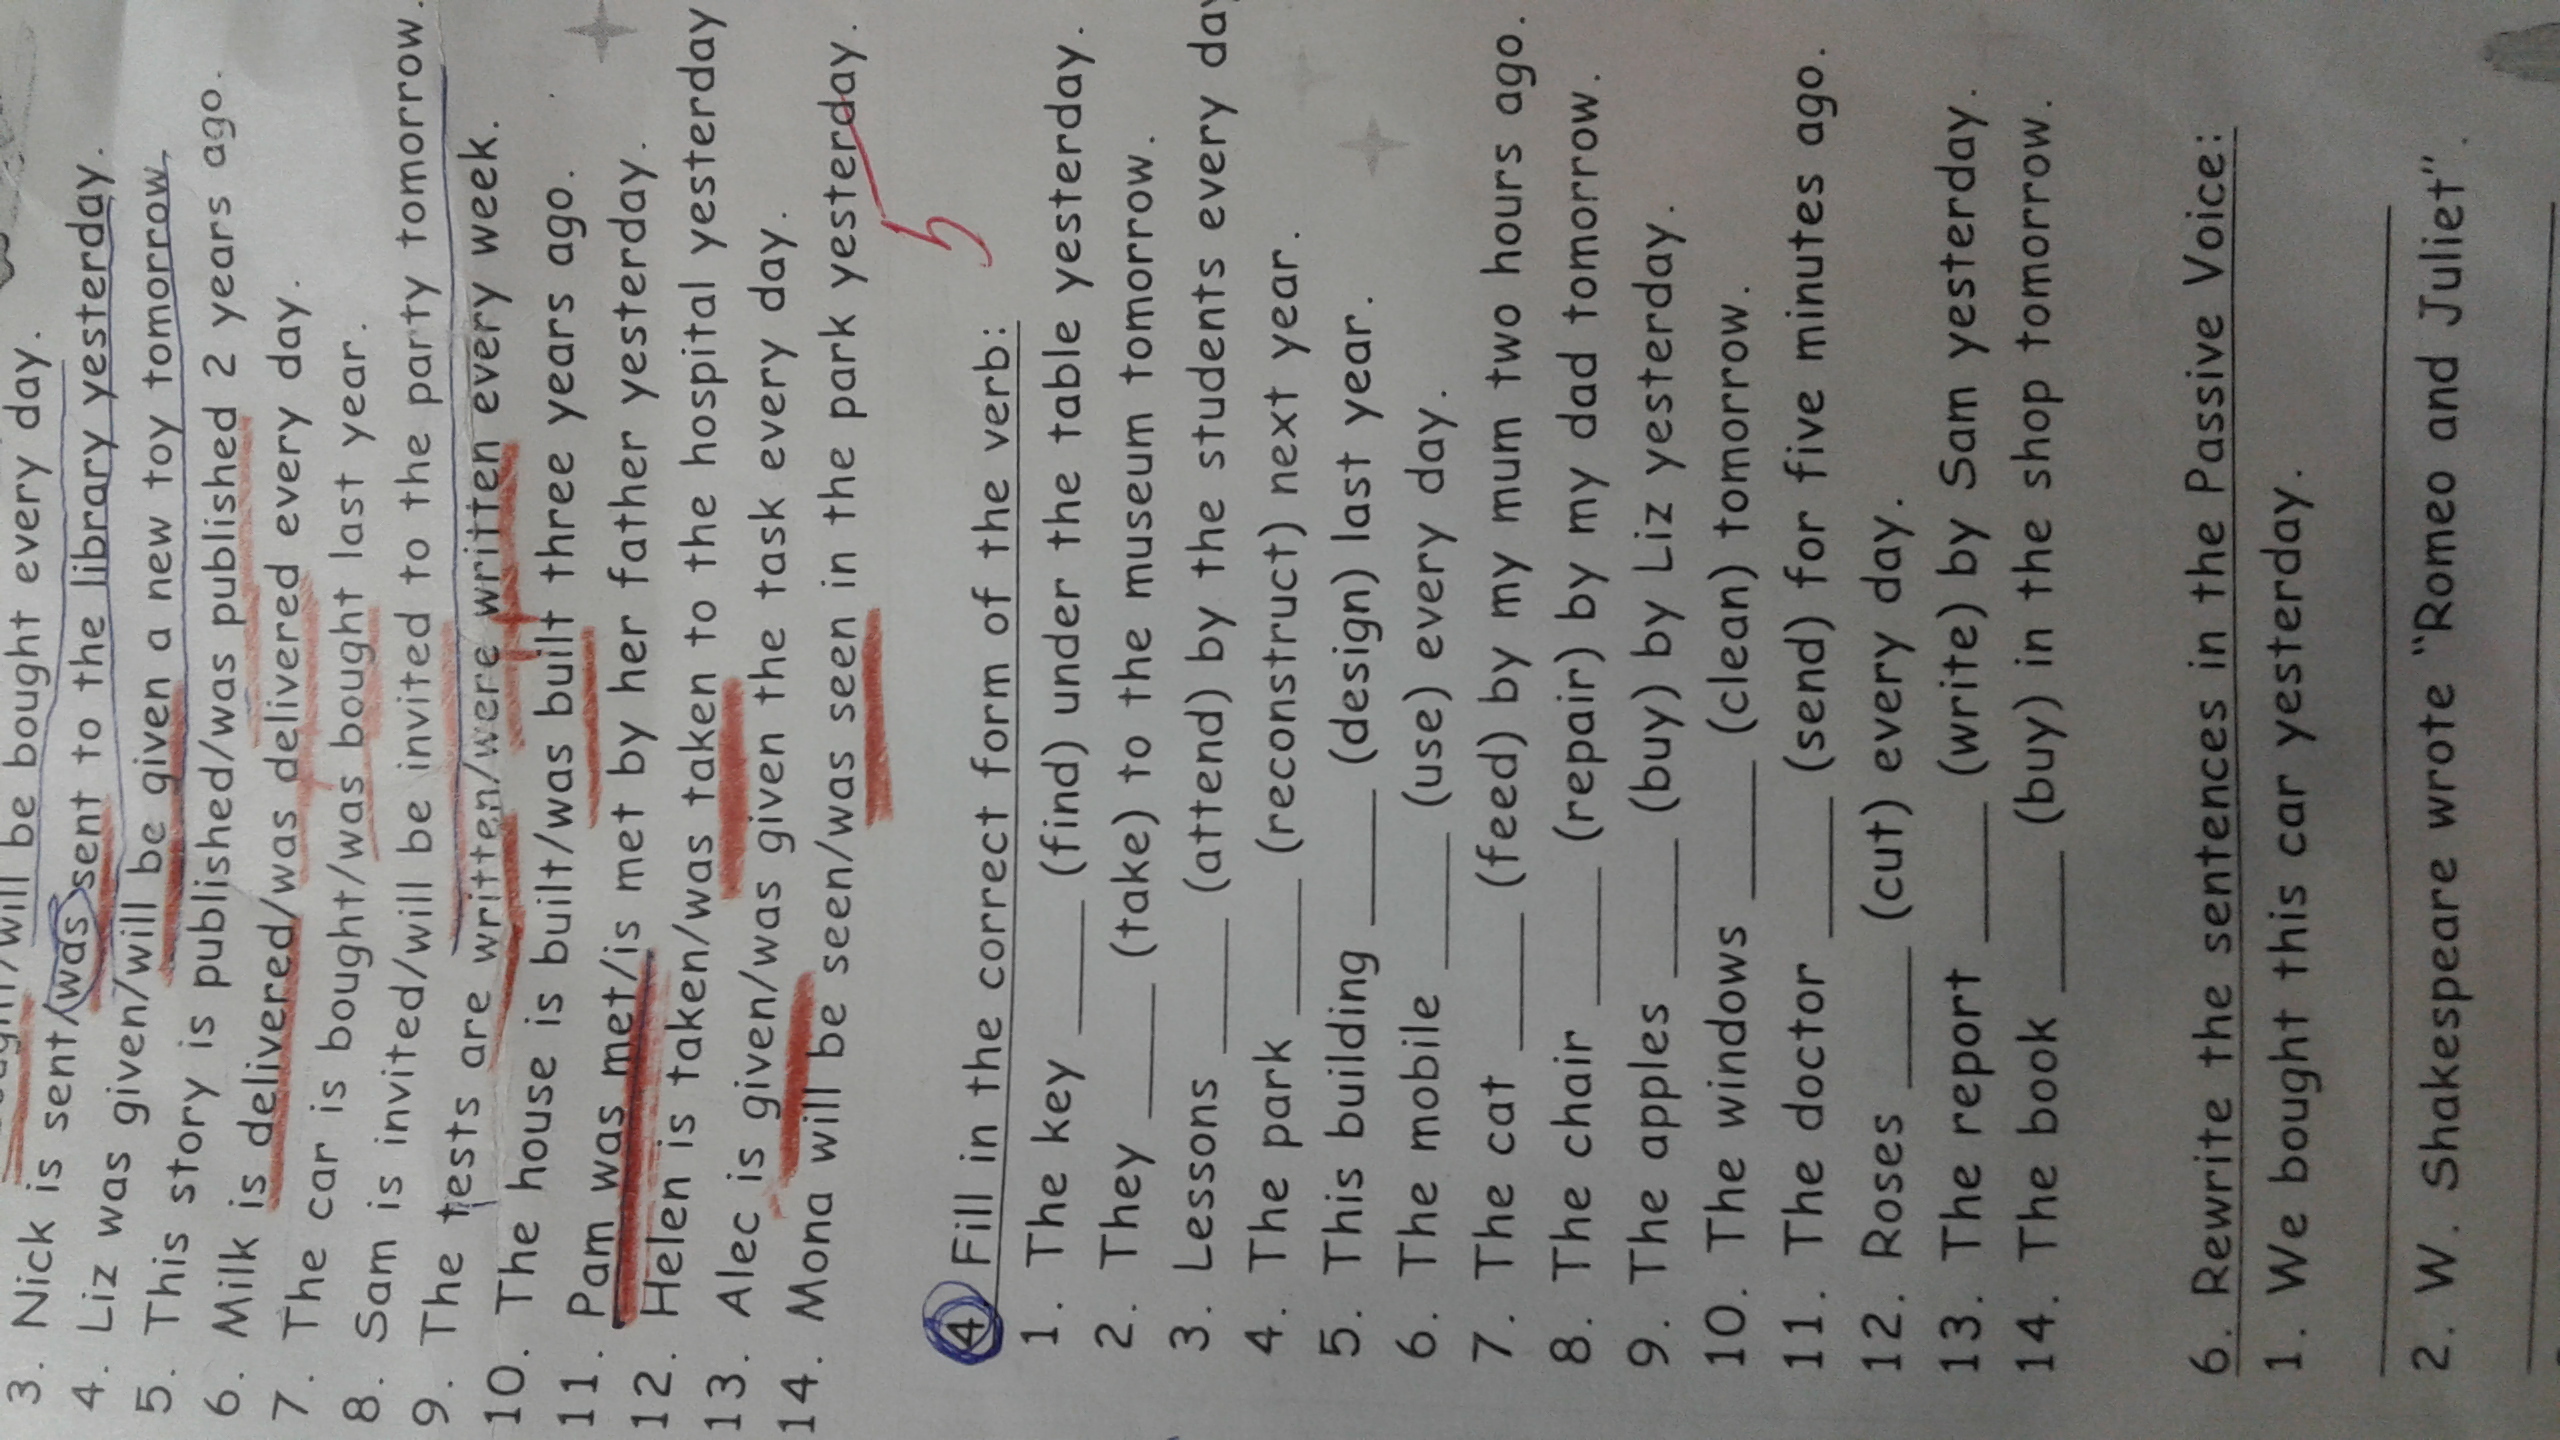 /will be bought every day.
3. Nick is sent/was sent to the library yesterday.
4. Liz was given/will be given a new toy tomorrow.
5. This story is published/was published 2 years ago.
6. Milk is delivered/was delivered every day.
7. The car is bought/was bought last year.
8. Sam is invited/will be invited to the party tomorrow.
9. The tests are written/were written every week.
10. The house is built/was built three years ago.
11. Pam was met/is met by her father yesterday.
12. Helen is taken/was taken to the hospital yesterday
13. Alec is given/was given the task every day.
14. Mona will be seen/was seen in the park yesterday.
5
4 Fill in the correct form of the verb:
1. The key ____ (find) under the table yesterday.
2. They ____ (take) to the museum tomorrow.
3. Lessons ____ (attend) by the students every day
4. The park ____ (reconstruct) next year.
5. This building ____ (design) last year.
6. The mobile ____ (use) every day.
7. The cat ____ (feed) by my mum two hours ago.
8. The chair ____ (repair) by my dad tomorrow.
9. The apples ____ (buy) by Liz yesterday.
10. The windows ____ (clean) tomorrow.
11. The doctor ____ (send) for five minutes ago.
12. Roses ____ (cut) every day.
13. The report ____ (write) by Sam yesterday.
14. The book ____ (buy) in the shop tomorrow.
6. Rewrite the sentences in the Passive Voice:
1. We bought this car yesterday.
2. W. Shakespeare wrote “Romeo and Juliet”.